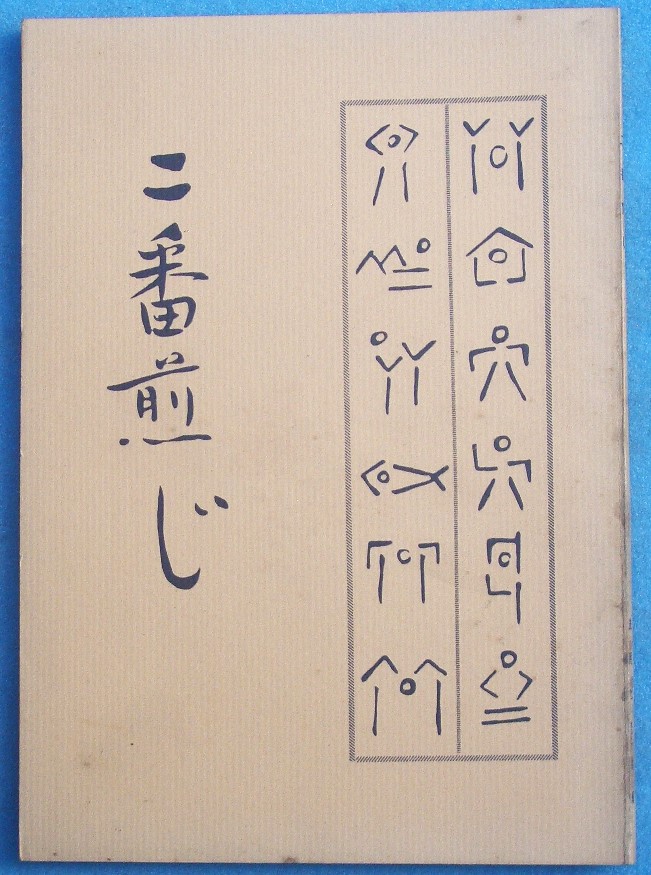 二番煎じ